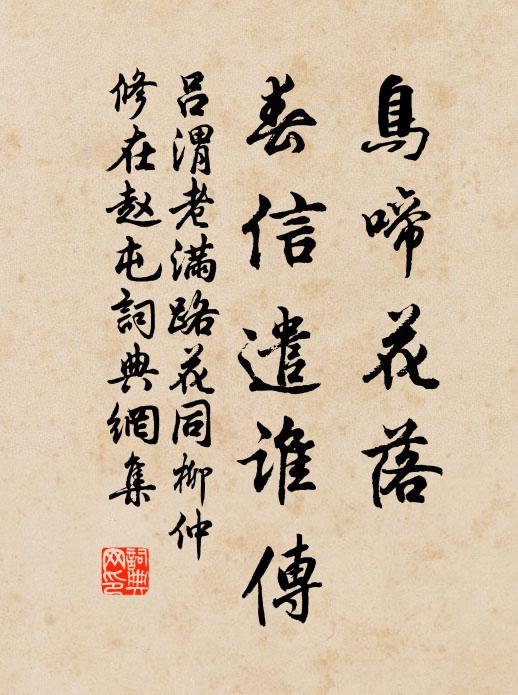 鳥啼花落
春信遣誰傳
吕渭老满路花同柳仲
修在赵屯詞典網集
詞典网印